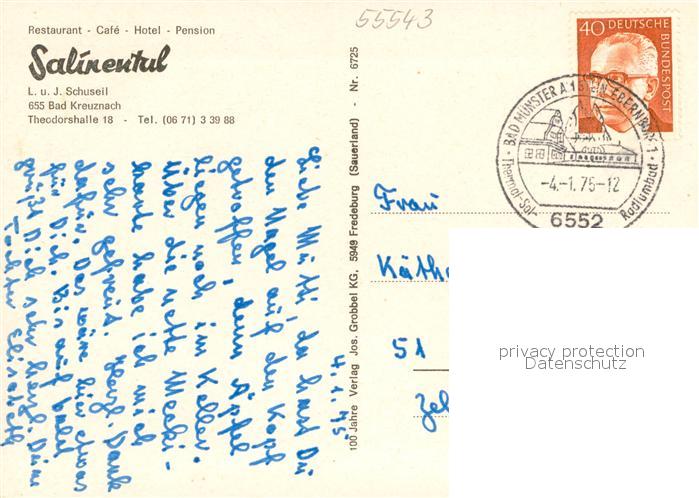 55543
Restaurant - Café - Hotel - Pension
Salinental
L. u. J. Schuseil
655 Bad Kreuznach
Theodorshalle 18 - Tel. (06 71) 3 39 88
100 Jahre Verlag Jos. Grobbel KG, 5949 Fredeburg (Sauerland) - Nr. 6725
40 DEUTSCHE
BUNDESPOST
BAD MÜNSTER A. STEIN-EBERNBURG 1
-4.-1.75-12
Thermal-Sol-
Radiumbad
6552
4.1.75
Liebe Mutti, da hast Du
den Nagel auf den Kopf
getroffen, denn Äpfel
liegen noch im Keller.
Über die nette Mecki-
karte habe ich mich
sehr gefreut. Herzl. Dank
dafür. Das wäre hier etwas
für Dich. Bis auf bald
grüßt Dich sehr herzl. Deine
Tochter Elisabeth
Frau
Käthe
51
privacy protection
Datenschutz